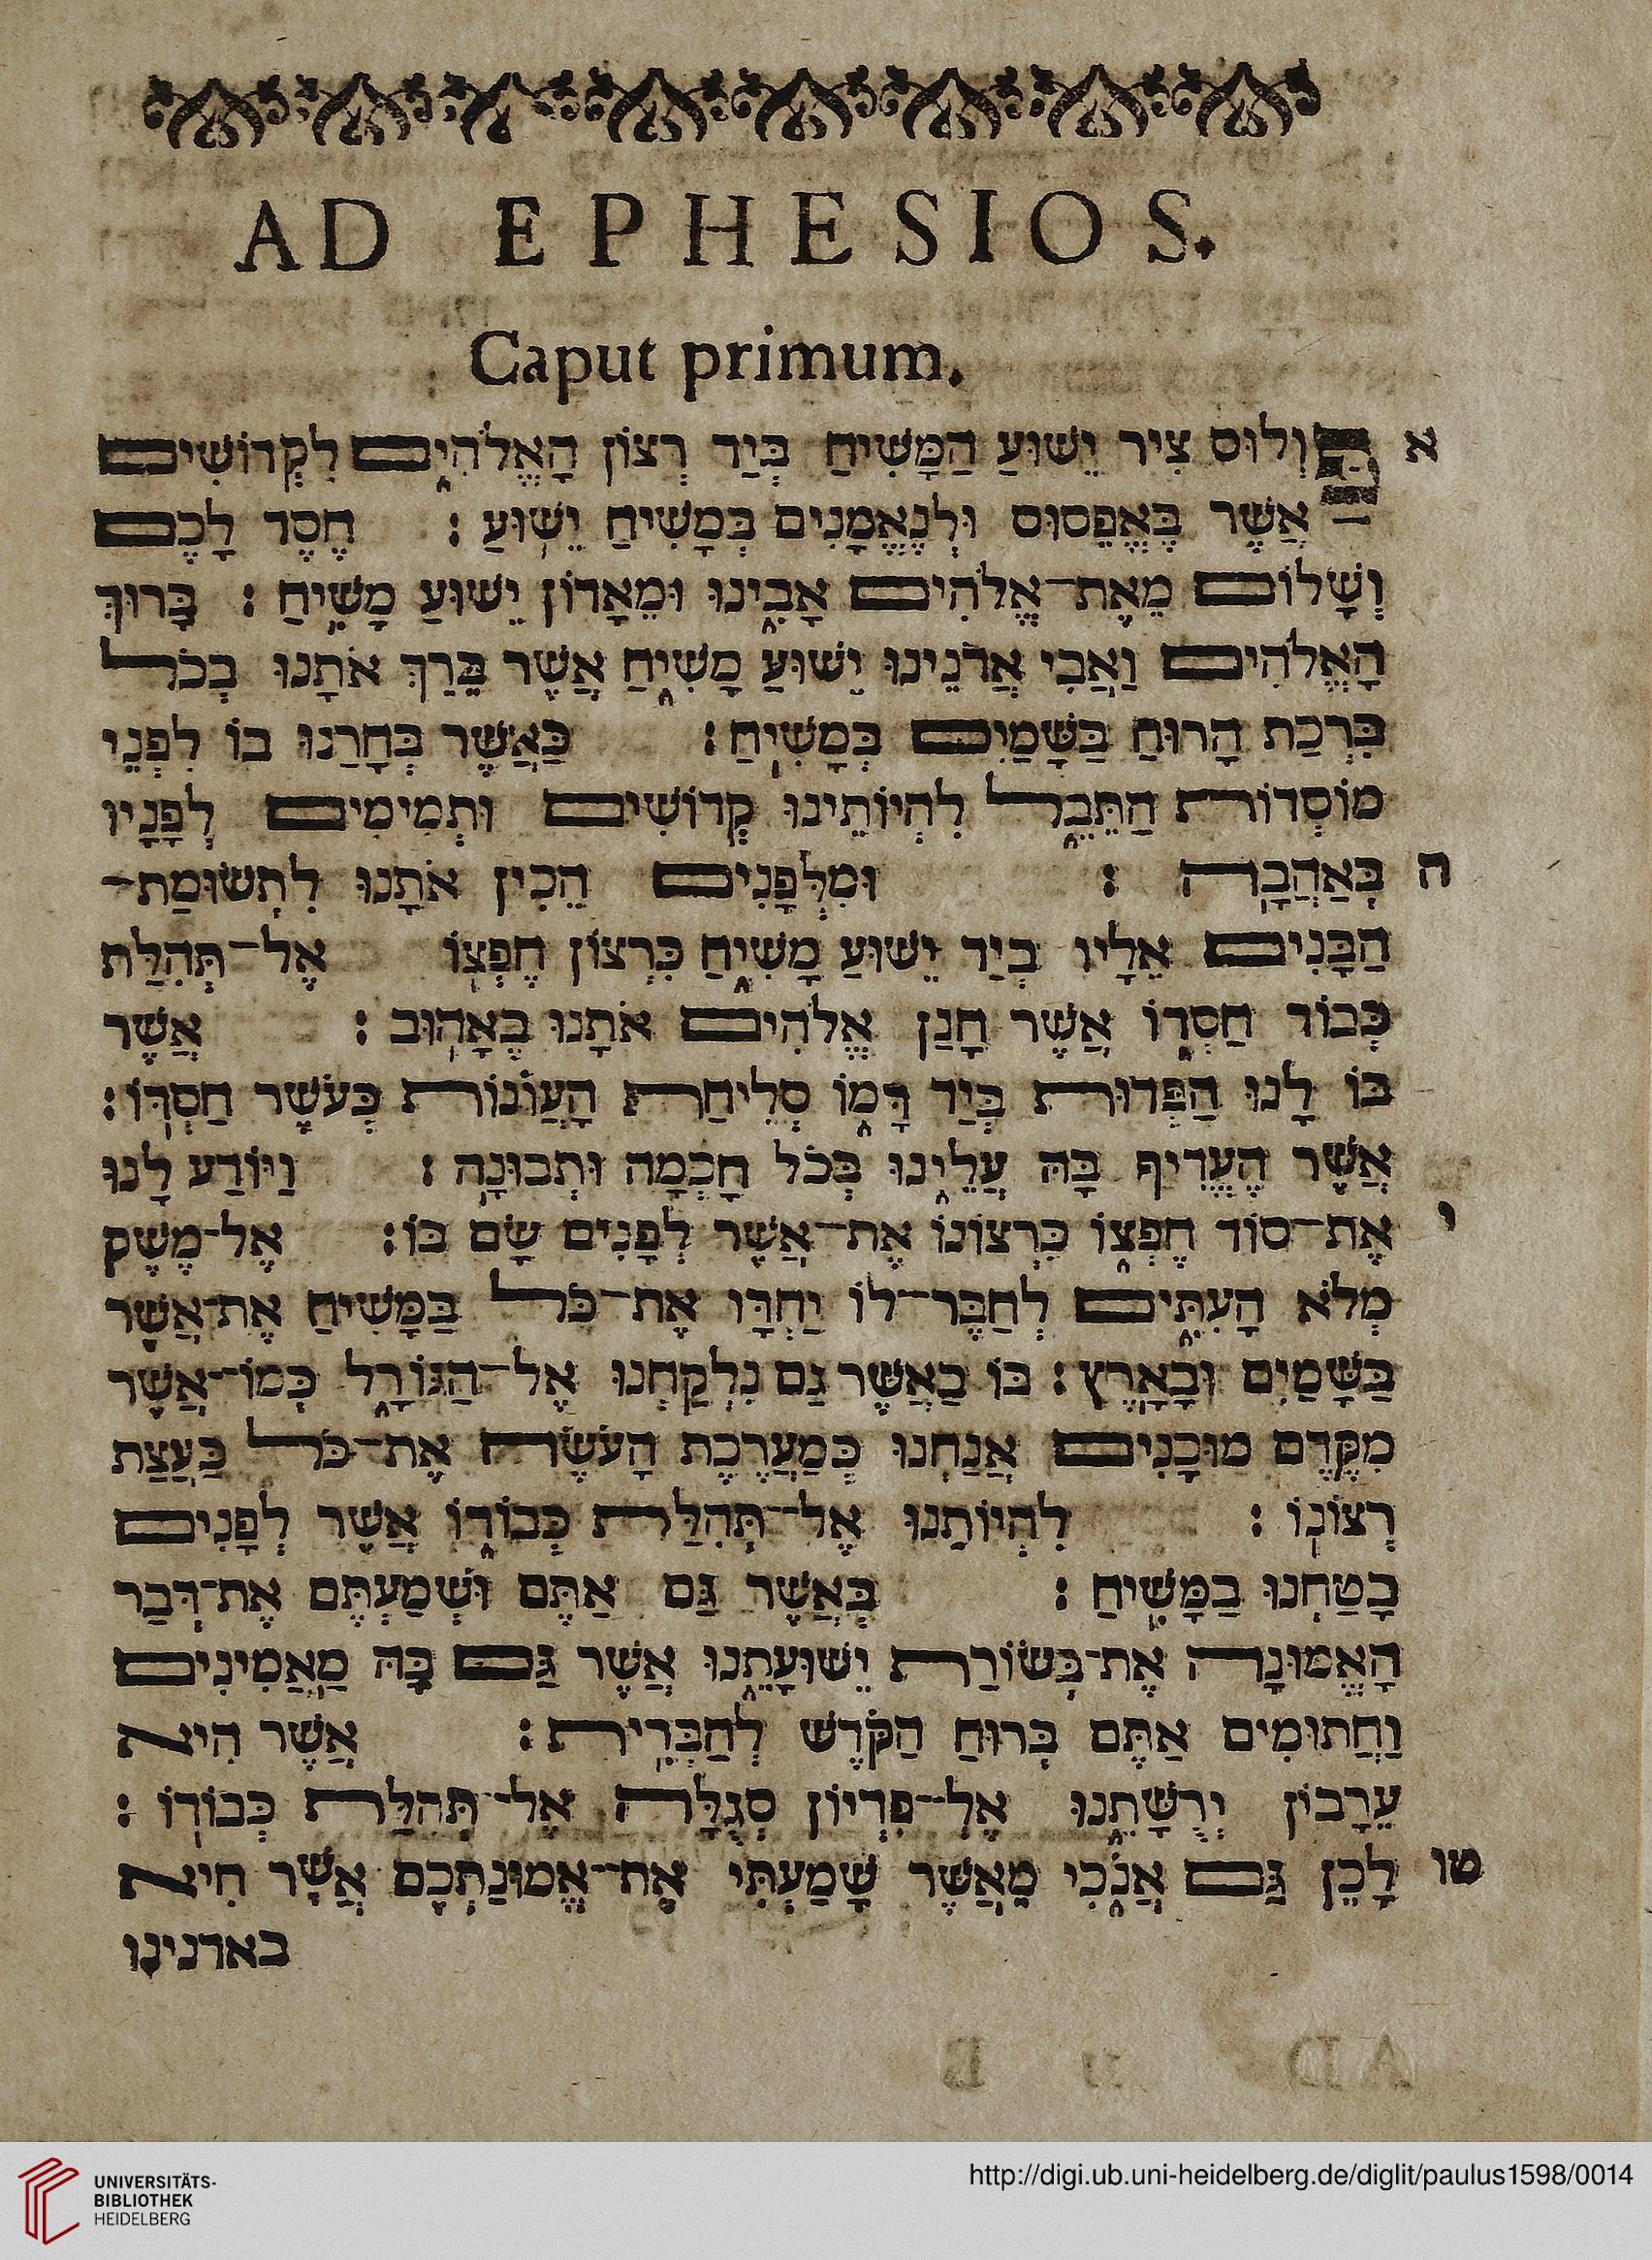 AD EPHESIOS.
Caput primum.
א פַּוְלוּס צִיר יֵשׁוּעַ הַמָּשִׁיחַ בְּיַד רְצוֹן הָאֱלֹהִ֑ים לִקְדוֹשִׁים
אֲשֶׁר בֶּאֱפֵסוּס וּלְנֶאֱמָנִים בְּמָשִׁיחַ יֵשֽׁוּעַ׃ חֶסֶד לָכֶם
וְשָׁלוֹם מֵאֵת־אֱלֹהִים אָבִ֑ינוּ וּמֵאָדוֹן יֵשׁוּעַ מָשִֽׁיחַ׃ בָּרוּךְ
הָאֱלֹהִים וַאֲבִי אֲדֹנֵינוּ יֵשׁוּעַ מָשִׁ֑יחַ אֲשֶׁר בֵּרַךְ אֹתָנוּ בְּכֹל
בִּרְכַת הָרוּחַ בַּשָּׁמַיִם בְּמָשִֽׁיחַ׃ כַּאֲשֶׁר בְּחָרַנוּ בוֹ לִפְנֵי
מוֹסְדוֹת הַתֵּבֵ֑ל לִהְיוֹתֵינוּ קְדוֹשִׁים וּתְמִימִים לְפָנָיו
ה בְּאַהֲבָֽה׃ וּמִלְּפָנִים הֵכִין אֹתָנוּ לִתְשׂוּמַת־
הַבָּנִים אֵלָיו בְּיַד יֵשׁוּעַ מָשִׁ֑יחַ כִּרְצוֹן חֶפְצֽוֹ אֶל־תְּהִלַּת
כְּבוֹד חַסְדּ֑וֹ אֲשֶׁר חָנַן אֱלֹהִים אֹתָנוּ בֶאָהֽוּב׃ אֲשֶׁר
בּוֹ לָנוּ הַפְּדוּת בְּיַד דָּמ֑וֹ סְלִיחַת הָעֲוֹנוֹת כְּעֹשֶׁר חַסְדּֽוֹ׃
אֲשֶׁר הֶעֱדִיף בָּהּ עָלֵ֑ינוּ בְּכֹל חָכְמָה וּתְבוּנָֽה׃ וַיּוֹדַע לָנוּ
י אֶת־סוֹד חֶפְצ֑וֹ כִּרְצוֹנוֹ אֶת־אֲשֶׁר לְפָנִים שָׂם בּוֹ׃ אֶל־מֶשֶׁק
מְלֹא הָעִתִּ֑ים לְחַבֶּר־לוֹ יַחְדָּו אֶת־כֹּל בַּמָּשִׁיחַ אֶת־אֲשֶׁר
בַּשָּׁמַיִם וּבָאָֽרֶץ׃ בּוֹ כַּאֲשֶׁר גַּם נִלְקַחְנוּ אֶל־הַגּוֹרָ֑ל כְּמוֹ־אֲשֶׁר
מִקֶּדֶם מוּכָנִים אֲנַחְנוּ כְּמַעֲרֶכֶת הָעֹשֶׂה אֶת־כֹּל כַּעֲצַת
רְצוֹנֽוֹ׃ לִהְיוֹתֵנוּ אֶל־תְּהִלַּת כְּבוֹד֑וֹ אֲשֶׁר לְפָנִים
בָטַחְנוּ בַמָּשִֽׁיחַ׃ בַּאֲשֶׁר גַּם אַתֶּם וּשְׁמַעְתֶּם אֶת־דְּבַר
הָאֱמוּנָה אֶת־בְּשׂוֹרַת יֵשׁוּעָתֵ֑נוּ אֲשֶׁר גַּם בָּהּ מַאֲמִינִים
וַחֲתוּמִים אַתֶּם בְּרוּחַ הַקֹּדֶשׁ לְהַבְּרִֽית׃ אֲשֶׁר הִיא
עֵרָבוֹן יְרֻשָּׁתֵ֑נוּ אֶל־פִּדְיוֹן סְגֻלָּה אֶל־תְּהִלַּת כְּבוֹדֽוֹ׃
טו לָכֵן גַּם אֲנֹ֑כִי מֵאֲשֶׁר שָׁמַעְתִּי אֶת־אֱמוּנַתְכֶם אֲשֶׁר הִיא
באדנינו
UNIVERSITÄTS-
BIBLIOTHEK
HEIDELBERG
http://digi.ub.uni-heidelberg.de/diglit/paulus1598/0014